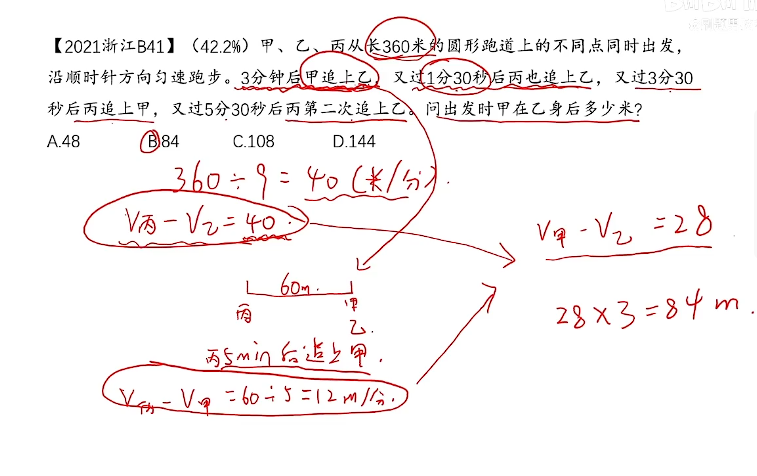 【2021浙江B41】（42.2%）甲、乙、丙从长360米的圆形跑道上的不同点同时出发，
沿顺时针方向匀速跑步。3分钟后甲追上乙，又过1分30秒后丙也追上乙，又过3分30
秒后丙追上甲，又过5分30秒后丙第二次追上乙。问出发时甲在乙身后多少米?
A.48 B.84 C.108 D.144
360÷9=40(米/分).
V丙-V乙=40.
V甲-V乙=28
60m.
丙 甲
乙.
28×3=84m.
丙5min后追上甲.
V丙-V甲=60÷5=12m/分.